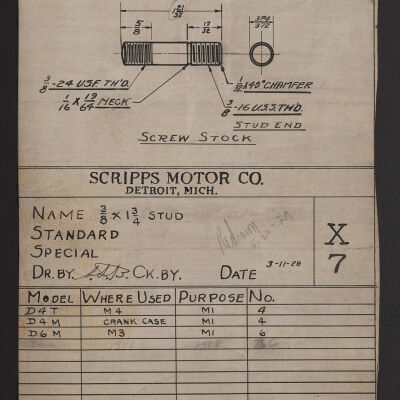 1 21/32
5/8
17/32
.374
.372
3/8 -24 U.S.F. TH'D.
1/32 X 45° CHAMFER
1/16 X 19/64 NECK
3/8 -16 U.S.S. TH'D.
STUD END
SCREW STOCK
SCRIPPS MOTOR CO.
DETROIT, MICH.
NAME 3/8 X 1 3/4 STUD
STANDARD
SPECIAL
X
7
DR. BY. CK. BY. DATE 3-11-28
MODEL WHERE USED PURPOSE NO.
D4T M4 M1 4
D4M CRANK CASE M1 4
D6M M3 M1 6